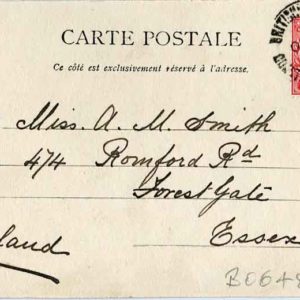 CARTE POSTALE
Ce côté est exclusivement réservé à l'adresse.
Miss. A. M. Smith
474 Romford Rd
Forest Gate
Essex